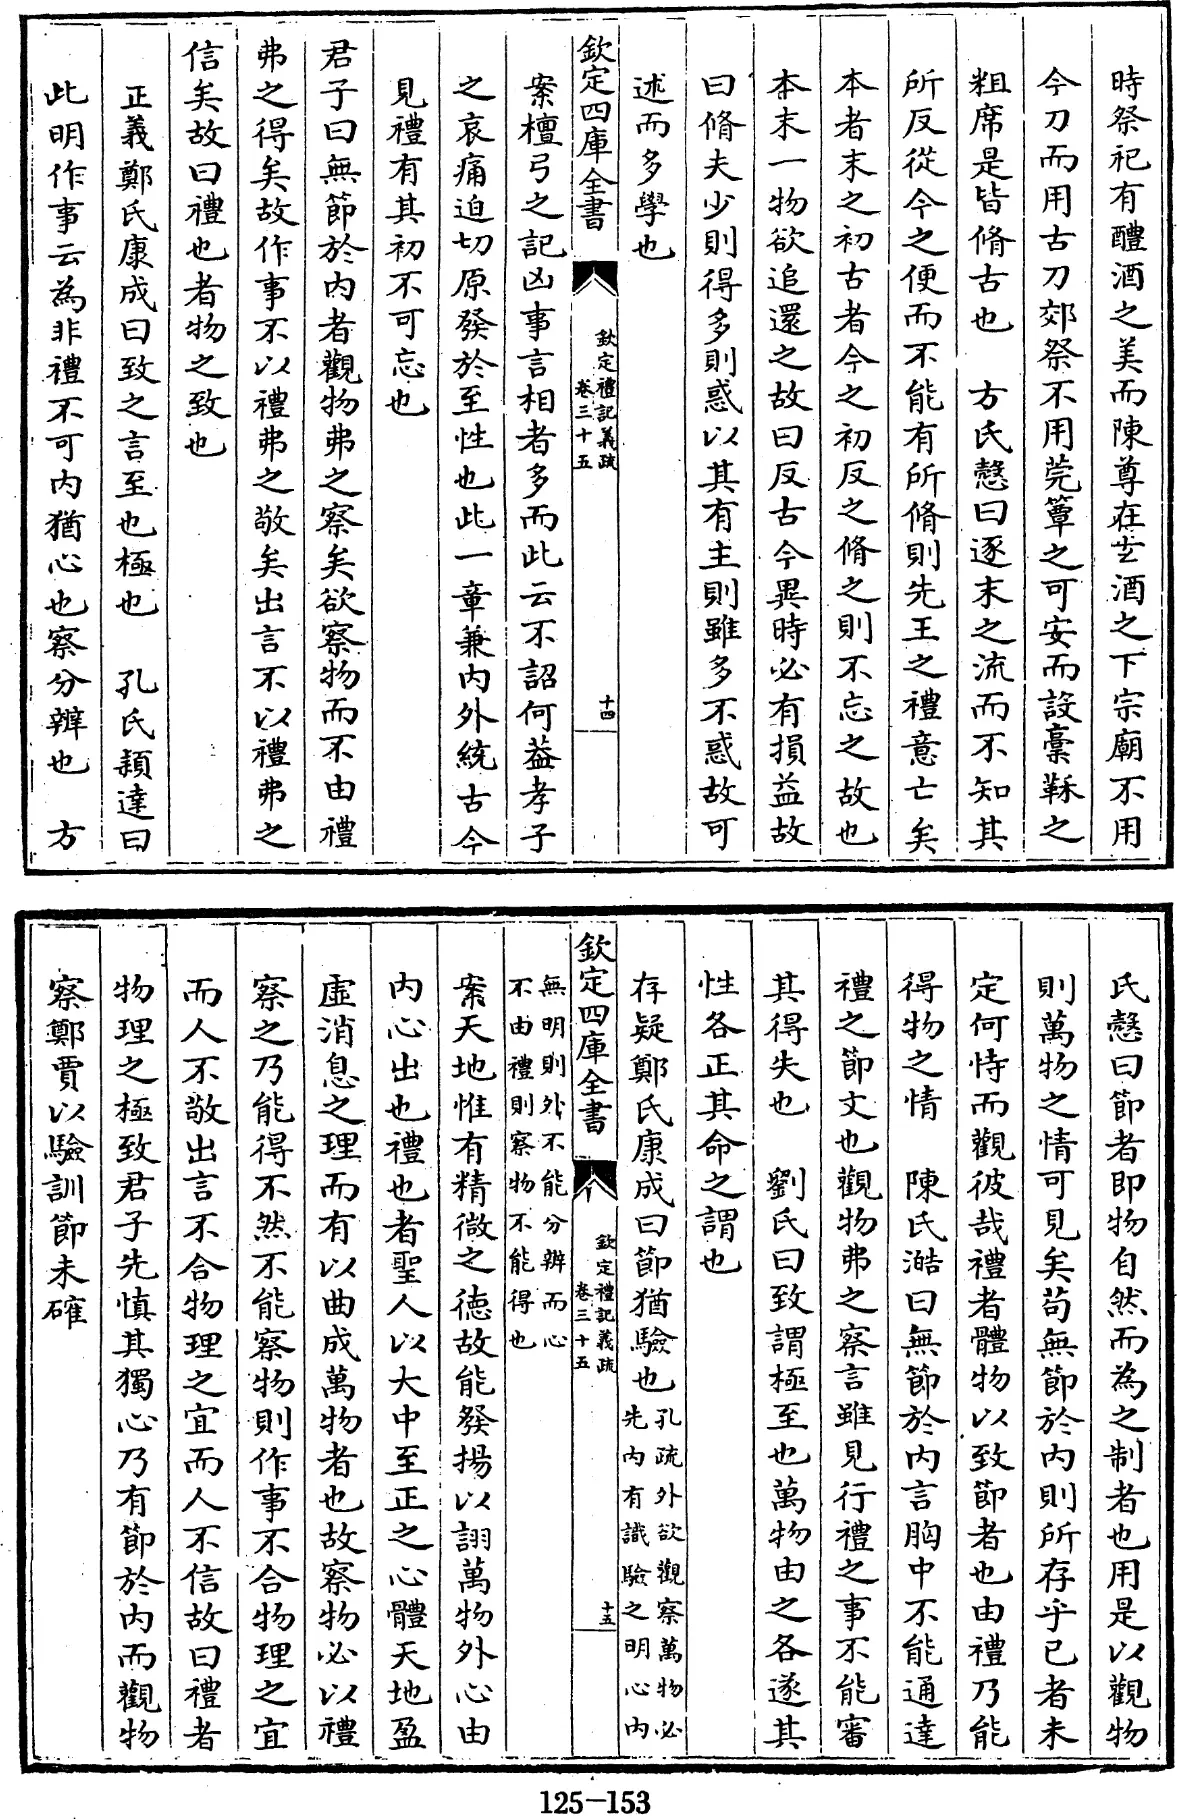 時祭祀有醴酒之美而陳尊在𤣥酒之下宗廟不用
今刀而用古刀郊祭不用莞簟之可安而設藁秣之
粗席是皆脩古也　方氏慤曰逐末之流而不知其
所反從今之便而不能有所脩則先王之禮意亡矣
本者末之初古者今之初反之脩之則不忘之故也
本末一物欲追還之故曰反古今異時必有損益故
曰脩夫少則得多則惑以其有主則雖多不惑故可
述而多學也
欽定四庫全書
欽定禮記義疏
卷三十五
十四
案檀弓之記凶事言相者多而此云不詔何益孝子
之哀痛迫切原發於至性也此一章兼内外統古今
見禮有其初不可忘也
君子曰無節於内者觀物弗之察矣欲察物而不由禮
弗之得矣故作事不以禮弗之敬矣出言不以禮弗之
信矣故曰禮也者物之致也
正義鄭氏康成曰致之言至也極也　孔氏頴達曰
此明作事云為非禮不可内猶心也察分辨也　方
氏慤曰節者即物自然而為之制者也用是以觀物
則萬物之情可見矣苟無節於内則所存乎已者未
定何恃而觀彼哉禮者體物以致節者也由禮乃能
得物之情　陳氏澔曰無節於内言胸中不能通達
禮之節文也觀物弗之察言雖見行禮之事不能審
其得失也　劉氏曰致謂極至也萬物由之各遂其
性各正其命之謂也
存疑鄭氏康成曰節猶驗也孔疏外欲觀察萬物必
先内有識驗之明心内
欽定四庫全書
欽定禮記義疏
卷三十五
十五
無明則外不能分辨而心
不由禮則察物不能得也
案天地惟有精微之德故能發揚以詡萬物外心由
内心出也禮也者聖人以大中至正之心體天地盈
虛消息之理而有以曲成萬物者也故察物必以禮
察之乃能得不然不能察物則作事不合物理之宜
而人不敬出言不合物理之宜而人不信故曰禮者
物理之極致君子先慎其獨心乃有節於内而觀物
察鄭賈以驗訓節未確
125-153